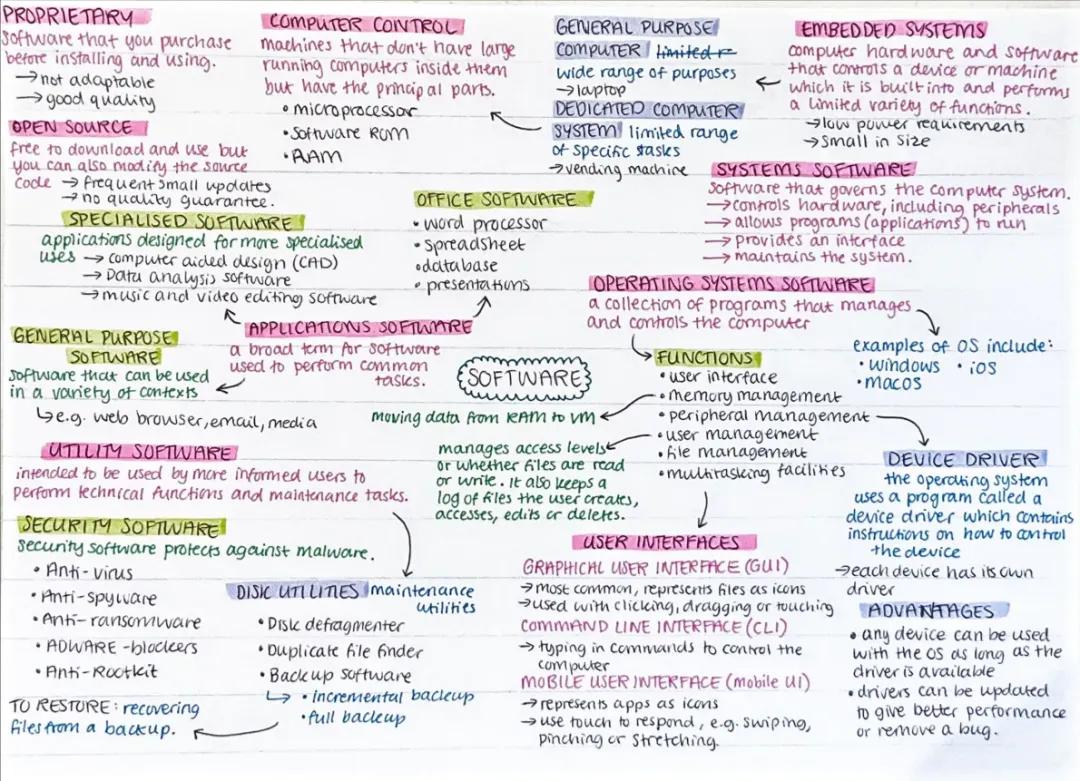 PROPRIETARY
Software that you purchase
before installing and using.
→not adaptable
→good quality
OPEN SOURCE
free to download and use but
you can also modify the source
code → frequent small updates
→ no quality guarantee.
COMPUTER CONTROL
machines that don't have large
running computers inside them
but have the principal parts.
• microprocessor
• Software ROM
• RAM
GENERAL PURPOSE
COMPUTER limited r
wide range of purposes
→laptop
DEDICATED COMPUTER
SYSTEM limited range
of specific tasks
→vending machine
EMBEDDED SYSTEMS
computer hardware and software
that controls a device or machine
which it is built into and performs
a limited variety of functions.
→low power requirements
→Small in Size
SYSTEMS SOFTWARE
Software that governs the computer system.
→controls hardware, including peripherals
→allows programs (applications) to run
→ Provides an interface
→ maintains the system.
SPECIALISED SOFTWARE
applications designed for more specialised
uses → computer aided design (CAD)
→ Data analysis software
→music and video editing software
OFFICE SOFTWARE
• word processor
• Spreadsheet
• database
• presentations
OPERATING SYSTEMS SOFTWARE
a collection of programs that manages
and controls the computer
examples of OS include:
• windows • iOS
• macOS
APPLICATIONS SOFTWARE
a broad term for software
used to perform common
tasks.
GENERAL PURPOSE
SOFTWARE
Software that can be used
in a variety of contexts
↳e.g. web browser, email, media
SOFTWARE
FUNCTIONS
• user interface
• memory management
• peripheral management
• user management
• file management
• multitasking facilities
moving data from RAM to VM
manages access levels
or whether files are read
or write. it also keeps a
log of files the user creates,
accesses, edits or deletes.
DEVICE DRIVER
the operating system
uses a program called a
device driver which contains
instructions on how to control
the device
→each device has its own
driver
ADVANTAGES
• any device can be used
with the OS as long as the
driver is available
• drivers can be updated
to give better performance
or remove a bug.
UTILITY SOFTWARE
intended to be used by more informed users to
perform technical functions and maintenance tasks.
SECURITY SOFTWARE
Security software protects against malware.
• Anti-virus
• Anti-spyware
• Anti-ransomware
• ADWARE -blockers
• Anti-Rootkit
DISK UTILITIES maintenance
utilities
• Disk defragmenter
• Duplicate file finder
• Backup Software
↳ • incremental backup
• full backup
TO RESTORE: recovering
files from a backup.
USER INTERFACES
GRAPHICAL USER INTERFACE (GUI)
→most common, represents files as icons
→used with clicking, dragging or touching
COMMAND LINE INTERFACE (CLI)
→ typing in commands to control the
computer
MOBILE USER INTERFACE (mobile UI)
→represents apps as icons
→ use touch to respond, e.g. swiping,
pinching or stretching.